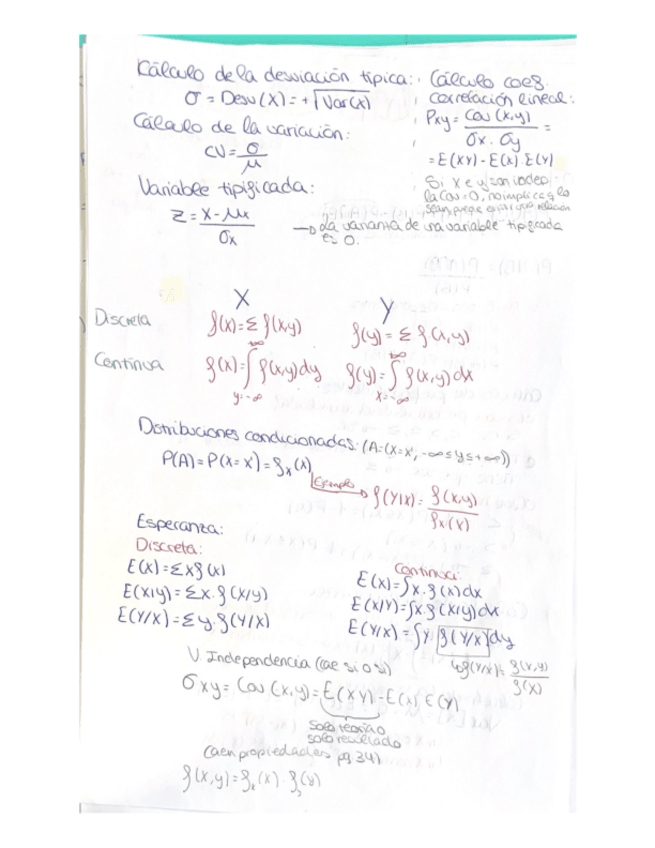 Cálculo de la desviación típica:
σ = Desv(X) = +√Var(X)
Cálculo de la variación:
CV = σ/μ
Variable tipificada:
Z = X - μx / σx
→ La varianza de una variable tipificada es 0.
Cálculo coef.
correlación lineal:
Pxy = Cov(X,y) / σx · σy =
= E(XY) - E(X) · E(Y)
Si X e y son indep
la Cov = 0, no implica q lo
sean
relación
X Y
Discreta f(x) = Σ f(x,y) f(y) = Σ f(x,y)
Continua f(x) = ∫ y=-∞ +∞ f(x,y) dy f(y) = ∫ x=-∞ +∞ f(x,y) dx
Distribuciones condicionadas: (A = (X = x', -∞ ≤ y ≤ +∞))
P(A) = P(X = x') = fx(x)
Ejemplo → f(Y/X) = f(x,y) / fx(x)
Esperanza:
Discreta:
E(X) = Σ x f(x)
E(X/Y) = Σ x · f(X/Y)
E(Y/X) = Σ y · f(Y/X)
Continua:
E(X) = ∫ x · f(x) dx
E(X/Y) = ∫ x · f(X/Y) dx
E(Y/X) = ∫ y · f(Y/X) dy
f(Y/X) = f(x,y) / f(x)
V. Independencia (cae si o si)
σxy = Cov(x,y) = E(XY) - E(X) E(Y)
solo resultado
(aen propiedades pg 34)
f(x,y) = fx(x) · fy(y)